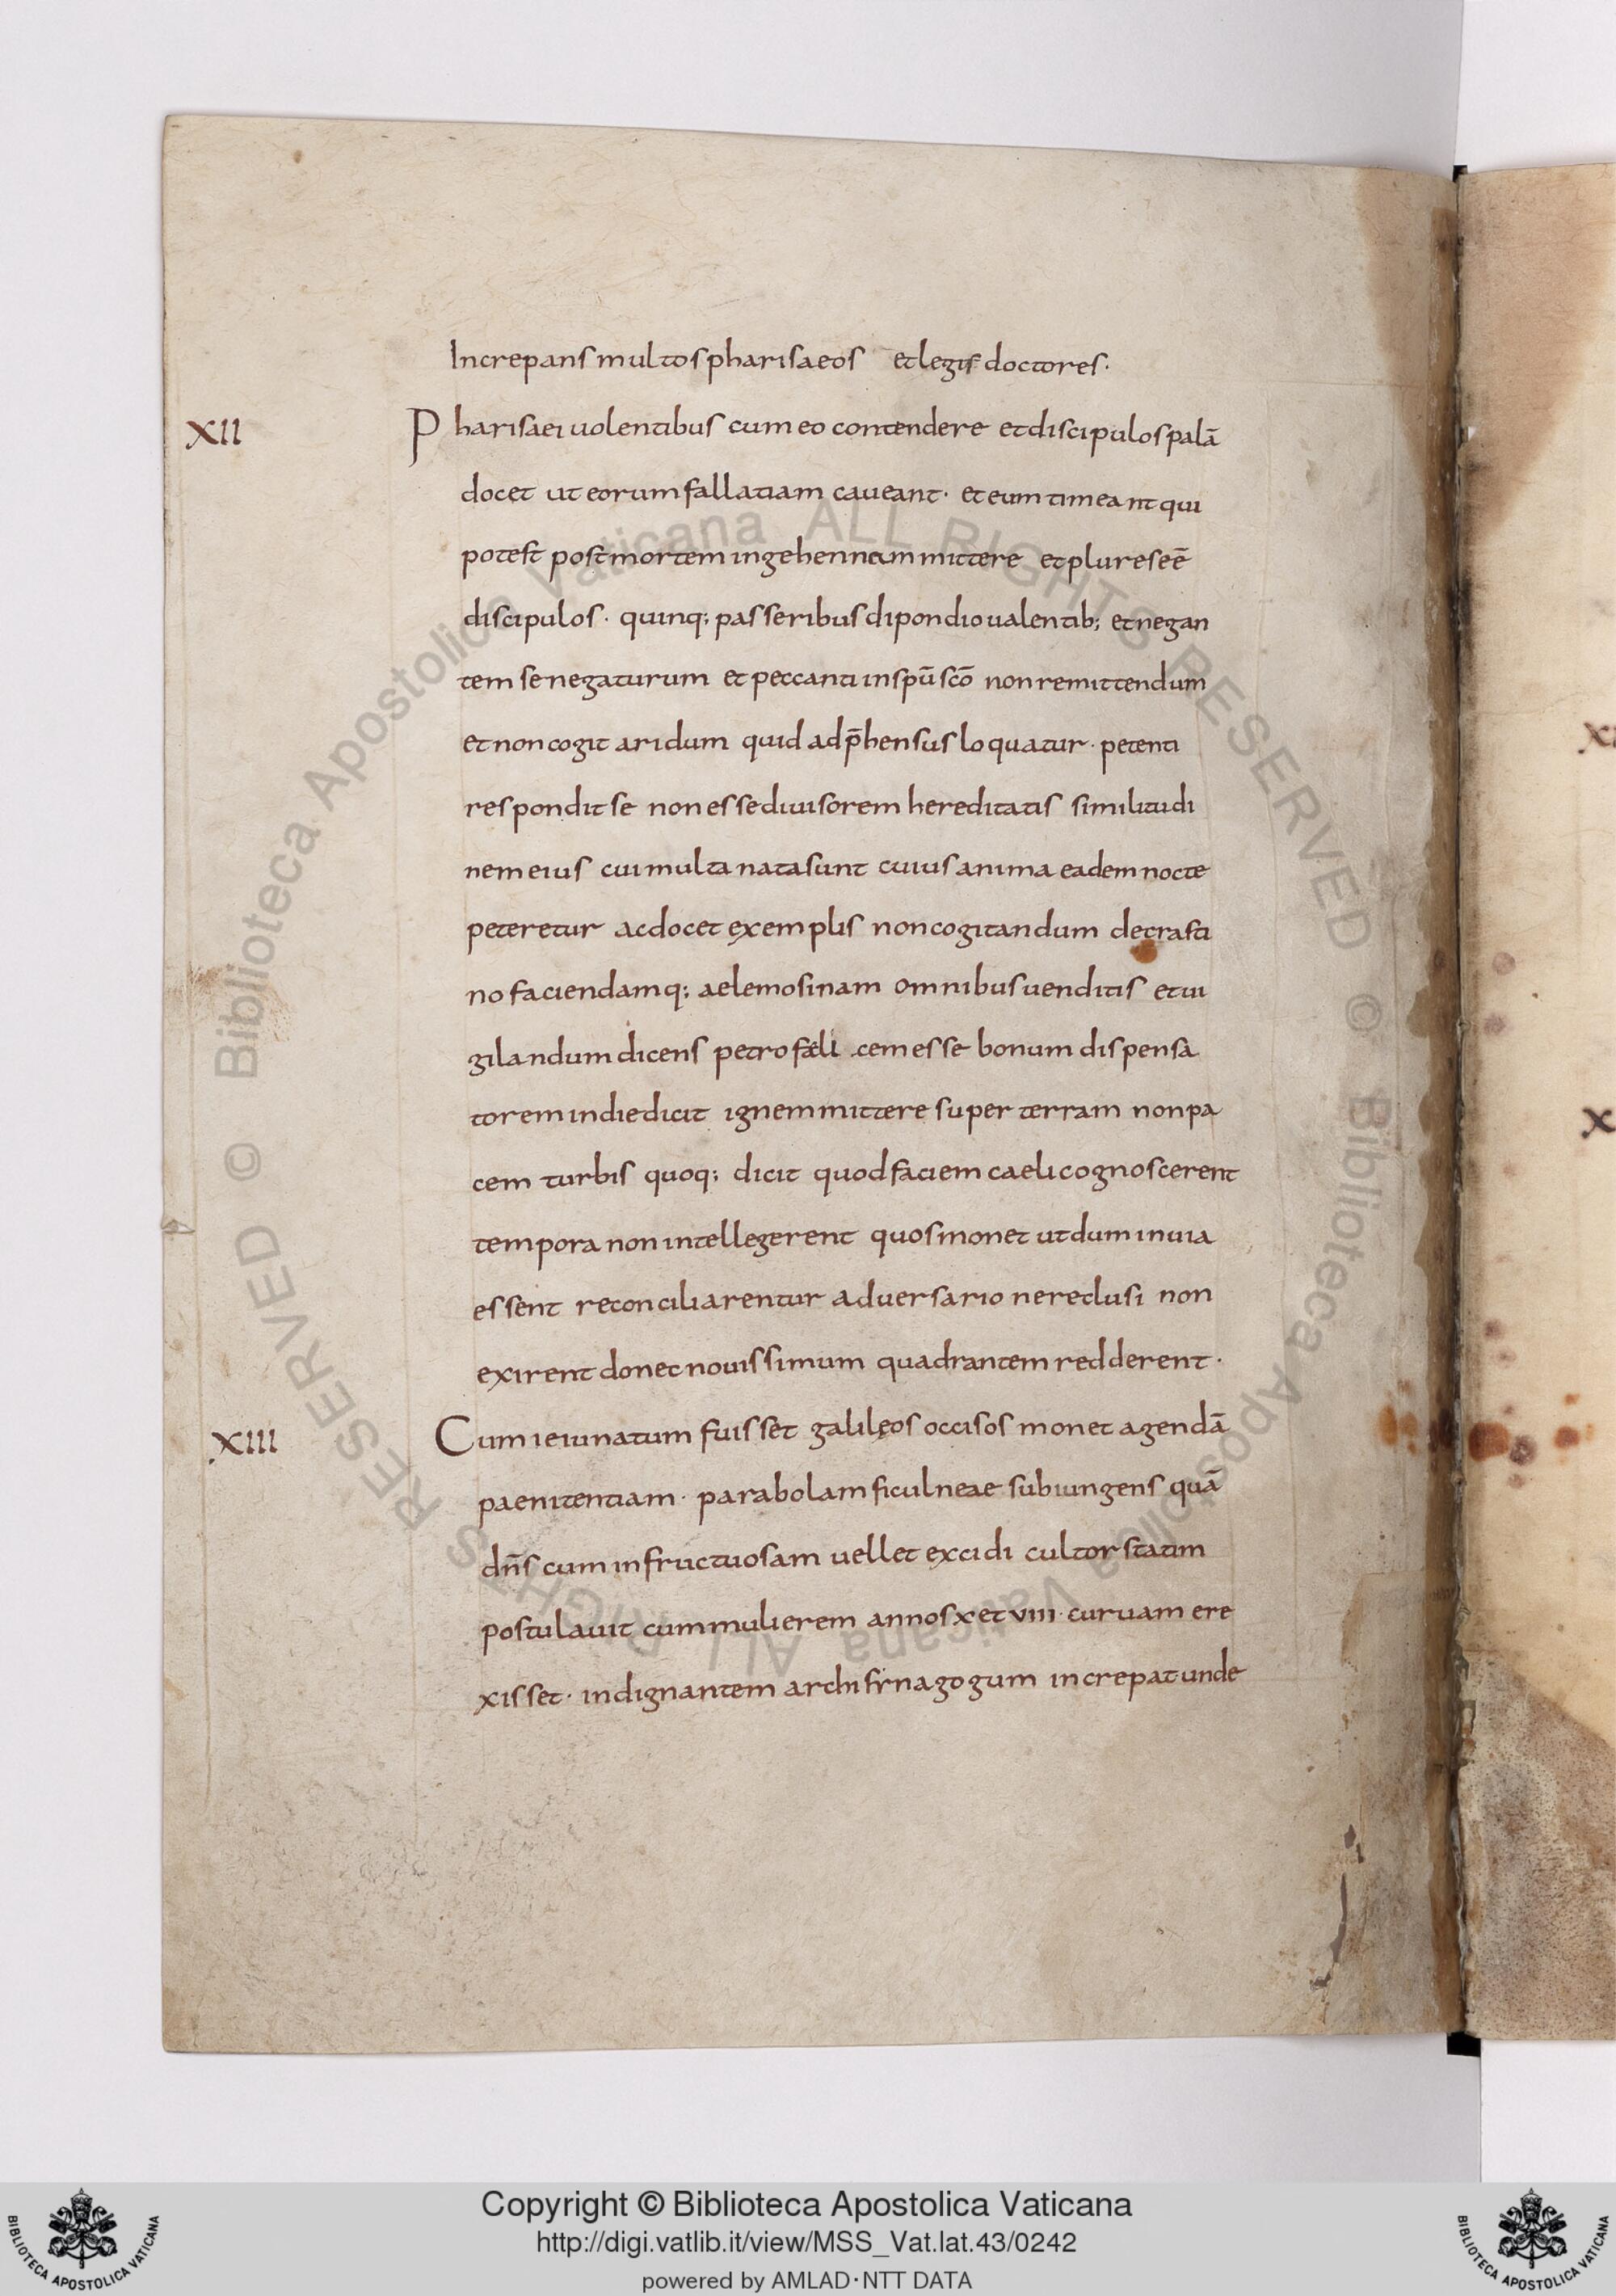 Increpans multos pharisaeos et legis doctores·
XII Pharisaei uolentibus cum eo contendere et discipulos palā
docet ut eorum fallatiam caueant· et eum timeant qui
potest post mortem in gehennam mittere et plures eē
discipulos· quinq; passeribus dipondio ualentib; et negan
tem se negaturum et peccanti in spū scō non remittendum
et non cogitaridum quid adp̄hensus loquatur· petenti
respondit se non esse diuisorem hereditatis similitudi
nem eius cui multa nata sunt cuius anima eadem nocte
peteretur ac docet exemplis non cogitandum de crasti
no faciendamq; aelemosinam omnibus uenditis et ui
gilandum dicens petro fæli cem esse bonum dispensa
torem in die dicit ignem mittere super terram non pa
cem turbis quoq; dicit quod faciem caeli cognoscerent
tempora non intellegerent quos monet ut dum in uia
essent reconciliarentur aduersario ne reclusi non
exirent donec nouissimum quadrantem redderent·
XIII Cum ieiunatum fuisset galilęos occisos monet agendā
paenitentiam· parabolam ficulneae subiungens quā
dn̄s cum infructuosam uellet excidi cultor statim
postulauit cum mulierem annos x et viii· curuam ere
xisset· indignantem archisynagogum increpat unde
Copyright © Biblioteca Apostolica Vaticana
http://digi.vatlib.it/view/MSS_Vat.lat.43/0242
powered by AMLAD·NTT DATA
BIBLIOTECA APOSTOLICA VATICANA
BIBLIOTECA APOSTOLICA VATICANA
© Biblioteca Apostolica Vaticana ALL RIGHTS RESERVED
© Biblioteca Apostolica Vaticana ALL RIGHTS RESERVED